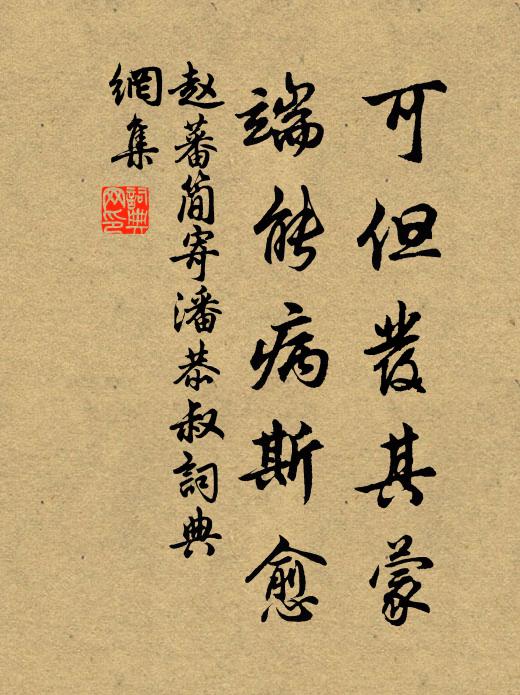 可但發其蒙
端能病斯愈
赵蕃简寄潘恭叔詞典
網集
詞典
网印